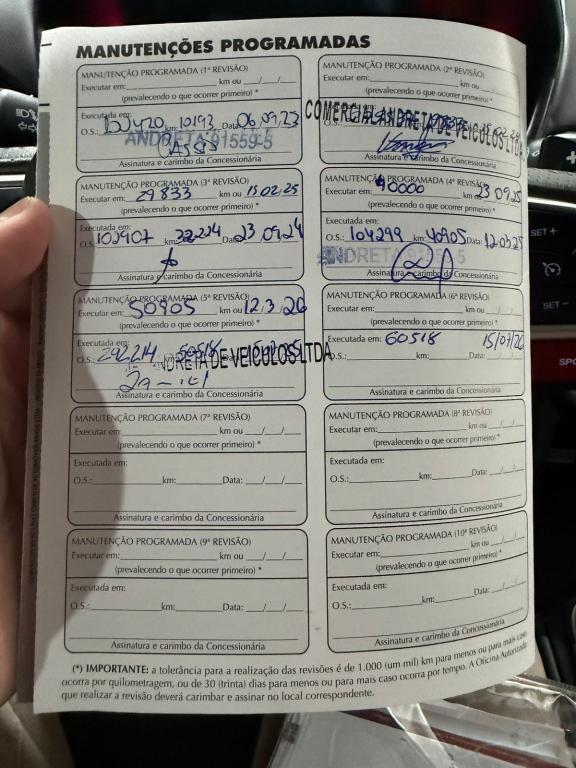 MANUTENÇÕES PROGRAMADAS
MANUTENÇÃO PROGRAMADA (1ª REVISÃO)
Executar em: km ou __/__/__
(prevalecendo o que ocorrer primeiro) *
O.S.: km: 10193 Data: 06.09.23
ANDRETA 91559-5
Assinatura e carimbo da Concessionária
MANUTENÇÃO PROGRAMADA (2ª REVISÃO)
Executar em: km ou __/__/__
(prevalecendo o que ocorrer primeiro) *
COMERCIAL ANDRETA DE VEICULOS LTDA
Assinatura e carimbo da Concessionária
MANUTENÇÃO PROGRAMADA (3ª REVISÃO)
Executar em: 29833 km ou 13.02.25
(prevalecendo o que ocorrer primeiro) *
Executada em:
O.S.: 102907 km: Data: 23.09.24
Assinatura e carimbo da Concessionária
MANUTENÇÃO PROGRAMADA (4ª REVISÃO)
Executar em: 40000 km ou 23 09.25
(prevalecendo o que ocorrer primeiro) *
Executada em:
O.S.: 104299 km: 40905 Data: 12.03.25
ANDRETA
Assinatura e carimbo da Concessionária
MANUTENÇÃO PROGRAMADA (5ª REVISÃO)
Executar em: 50905 km ou 12.3.26
(prevalecendo o que ocorrer primeiro) *
Executada em:
O.S.: km: 50518 Data:
ANDRETA DE VEICULOS LTDA
Assinatura e carimbo da Concessionária
MANUTENÇÃO PROGRAMADA (6ª REVISÃO)
Executar em: km ou __/__/__
(prevalecendo o que ocorrer primeiro) *
Executada em: 60518 15/07/26
O.S.: km: Data: __/__/__
Assinatura e carimbo da Concessionária
MANUTENÇÃO PROGRAMADA (7ª REVISÃO)
Executar em: km ou __/__/__
(prevalecendo o que ocorrer primeiro) *
Executada em:
O.S.: km: Data: __/__/__
Assinatura e carimbo da Concessionária
MANUTENÇÃO PROGRAMADA (8ª REVISÃO)
Executar em: km ou __/__/__
(prevalecendo o que ocorrer primeiro) *
Executada em:
O.S.: km: Data: __/__/__
Assinatura e carimbo da Concessionária
MANUTENÇÃO PROGRAMADA (9ª REVISÃO)
Executar em: km ou __/__/__
(prevalecendo o que ocorrer primeiro) *
Executada em:
O.S.: km: Data: __/__/__
Assinatura e carimbo da Concessionária
MANUTENÇÃO PROGRAMADA (10ª REVISÃO)
Executar em: km ou __/__/__
(prevalecendo o que ocorrer primeiro) *
Executada em:
O.S.: km: Data: __/__/__
Assinatura e carimbo da Concessionária
(*) IMPORTANTE: a tolerância para a realização das revisões é de 1.000 (um mil) km para menos ou para mais caso
ocorra por quilometragem, ou de 30 (trinta) dias para menos ou para mais caso ocorra por tempo. A Oficina Autorizada
que realizar a revisão deverá carimbar e assinar no local correspondente.
SET +
SET −
SPO